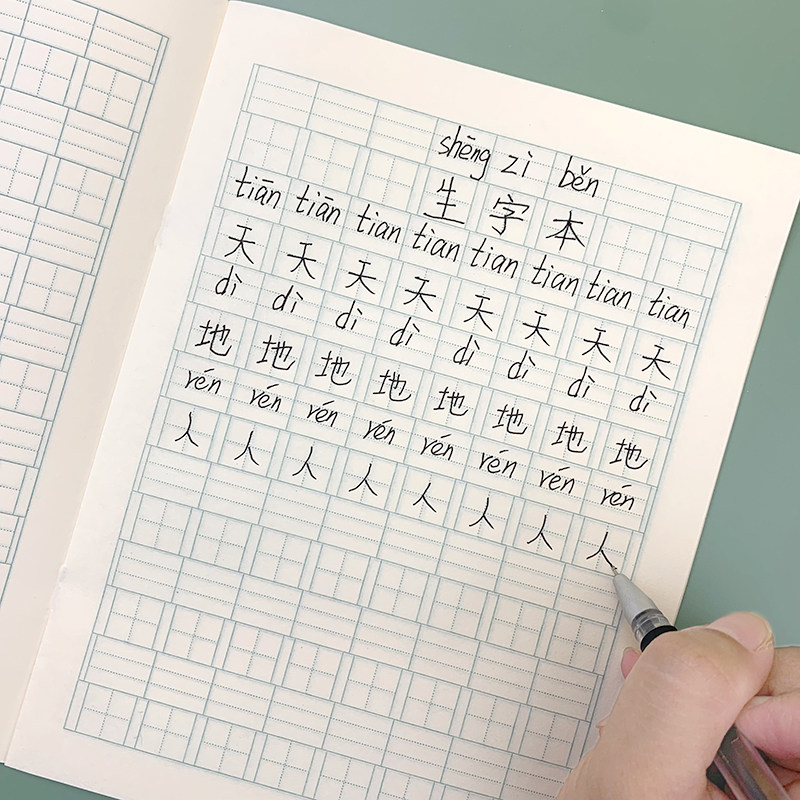 shēng zì běn
生字本
tiān tiān tian tiàn tian tian tian tian
天天天天天天天天
dì dì dì dì dì dì dì dì
地地地地地地地地
rén rén rén rén rén rén rén rén
人人人人人人人人